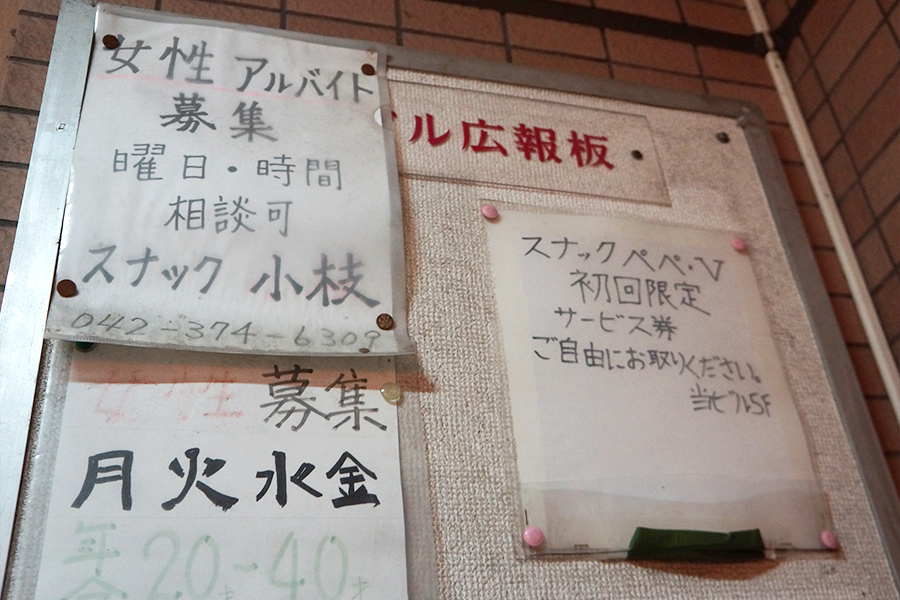 女性 アルバイト
募集
曜日・時間
相談可
スナック 小枝
042-374-6309
ル広報板
スナックペペ・V
初回限定
サービス券
ご自由にお取りください。
当ビル5F
女性募集
月火水金
年令 20才-40才